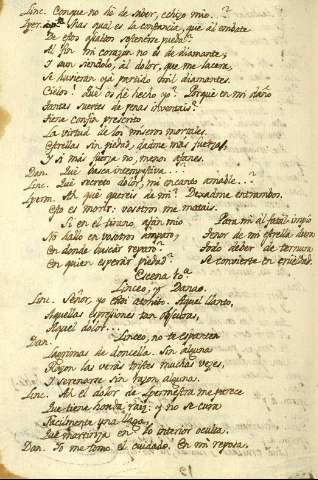 Linc. Conque no he de saber, echizo mio..?
Iper. Mas qual es la constancia, que al embate
De estos golpes sostenerse pueda?
Al fin mi corazon no es de diamante;
Y aun siendolo, al dolor, que me lacera,
Se hubieran ya partido mil diamantes.
Cielos! Qué os hé hecho yo? Porqué en mi daño
tantas suertes de penas inventais?
Fiera contra
La virtud de los miseros mortales.
Estrellas sin piedad, dadme mas fuerzas,
Y si mas fuerza no, menos afanes.
Dan. Qué basca intempestiva....
Linc. Qué secreto dolor, mi encanto amable...?
Iperm. Ah qué quereis de mi? Dexadme entrambos.
Esto es morir: vosotros me matais.
Si en el tirano, afan mio
No hallo en vosotros amparo,
En donde buscar reparo?
En quien esperar piedad?
Para mi al fatal impio
Tenor de mi estrella dura
Todo deber de ternura
Se convierte en crueldad.
Escena 10ª
Linceo, y Danao.
Linc. Señor, yo estoi atonito. Aquel llanto,
Aquellas espresiones tan obscuras,
Aquel dolor...
Dan. Linceo, no te espanten
Lagrimas de doncella. Sin alguna
Razon las verás tristes muchas veces,
Y serenarse sin razon alguna.
Linc. Ah el dolor de Ipermestra me parece
Que tiene honda raiz; y no se cura
Facilmente una llaga,
Que martiriza en lo interior oculta.
Dan. Yo me tomo el cuidado. En mi reposa,